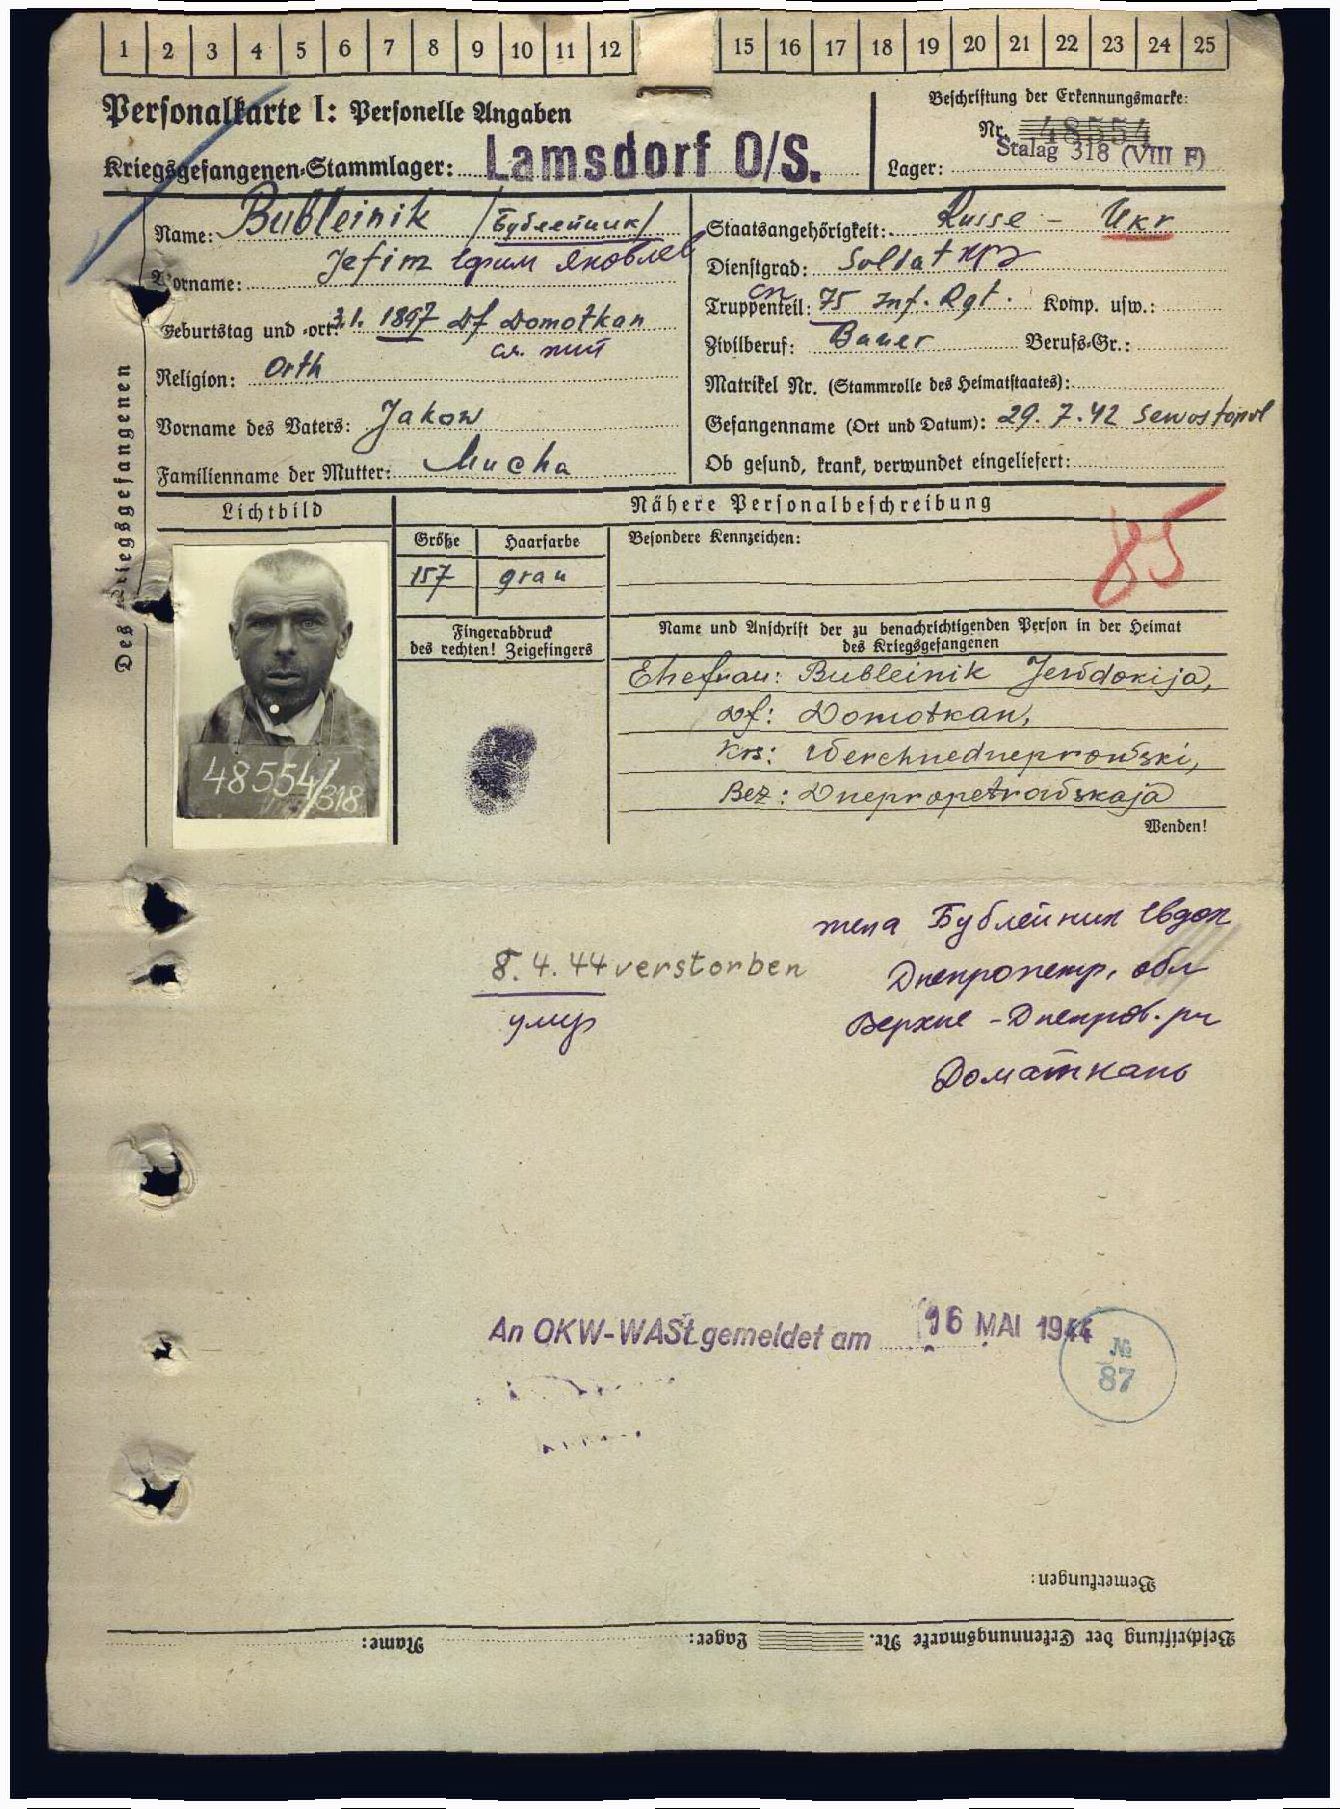 1 2 3 4 5 6 7 8 9 10 11 12 15 16 17 18 19 20 21 22 23 24 25
Personalkarte I: Personelle Angaben
Kriegsgefangenen-Stammlager: Lamsdorf O/S.
Beschriftung der Erkennungsmarke:
Nr. 48554
Stalag 318 (VIII F)
Lager:
Des Kriegsgefangenen
Name: Bubleinik /Бублейник/
Vorname: Jefim Ефим Яковлев
Geburtstag und -ort: 3.1. 1897 Df Domotkan
Religion: Orth
Vorname des Vaters: Jakow
Familienname der Mutter: Mucha
Staatsangehörigkeit: Russe - Ukr
Dienstgrad: Soldat кр
Truppenteil: 75 Inf. Rgt. Komp. usw.:
сп
Zivilberuf: Bauer Berufs-Gr.:
Matrikel Nr. (Stammrolle des Heimatstaates):
Gefangenname (Ort und Datum): 29. 7. 42 Sewostopol
Ob gesund, krank, verwundet eingeliefert:
Lichtbild
48554/318
Nähere Personalbeschreibung
Größe Haarfarbe
157 grau
Besondere Kennzeichen:
85
Fingerabdruck
des rechten! Zeigefingers
Name und Anschrift der zu benachrichtigenden Person in der Heimat
des Kriegsgefangenen
Ehefrau: Bubleinik Jewdokija,
Df: Domotkan,
Krs: Werchnedneprowski,
Bez: Dnepropetrowskaja
Wenden!
жена Бублейник Евдок
Днепропетр. обл
Верхне-Днепров. рн
Доматкань
8. 4. 44 verstorben
умер
An OKW-WASt gemeldet am 16 MAI 1944
№
87
Bemerkungen:
Beschriftung der Erkennungsmarke Nr. Lager: Name: